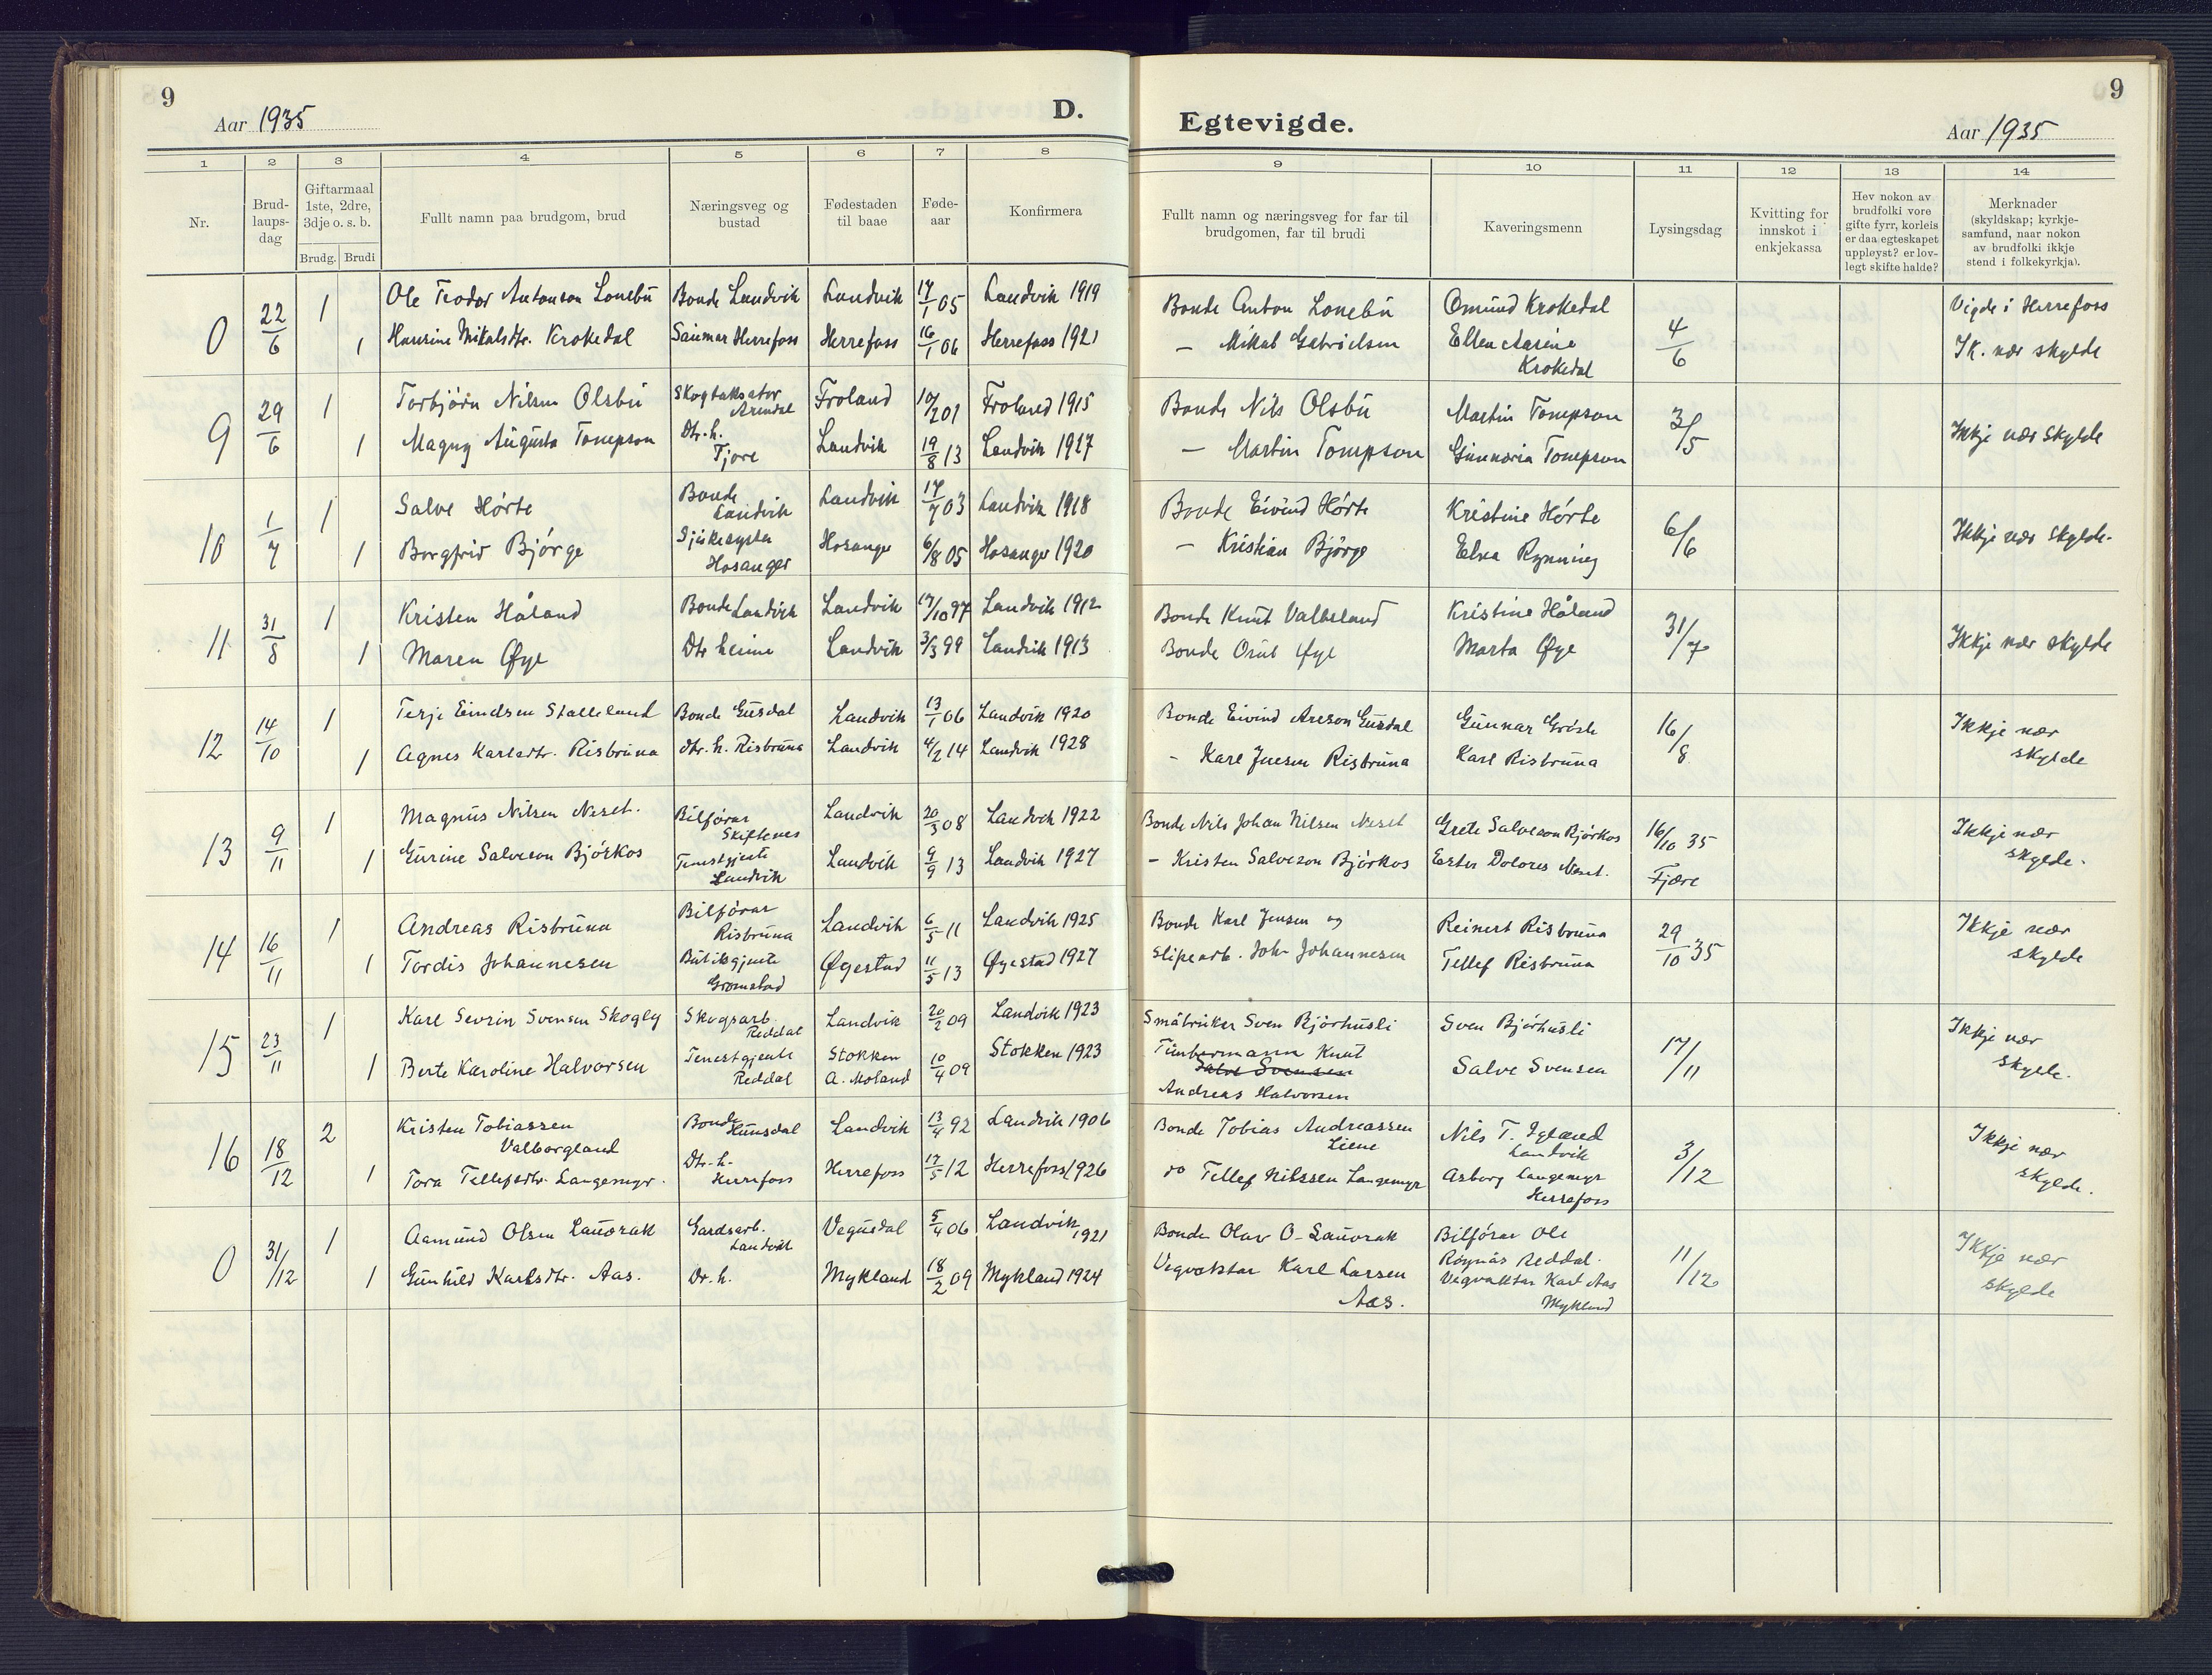 9
Aar 1935
D.
Egtevigde.
Aar 1935
9
1 2 3 4 5 6 7 8 9 10 11 12 13 14
Nr.
Brud-
laups-
dag
Giftarmaal
1ste, 2dre,
3dje o. s. b.
Brudg. Brudi
Fullt namn paa brudgom, brud
Næringsveg og
bustad
Fødestaden
til baae
Føde-
aar
Konfirmera
Fullt namn og næringsveg for far til
brudgomen, far til brudi
Kaveringsmenn
Lysingsdag
Kvitting for
innskot i
enkjekassa
Hev nokon av
brudfolki vore
gifte fyrr, korleis
er daa egteskapet
uppløyst? er lov-
legt skifte halde?
Merknader
(skyldskap; kyrkje-
samfund, naar nokon
av brudfolki ikkje
stend i folkekyrkja).
0 22/6 1 Ole Teodor Antonson Lonebu Bonde Landvik Landvik 17/1 05 Landvik 1919 Bonde Anton Lonebu Omund Krokedal 4/6 Vigde i Herrefoss
1 Hansine Mikalsdtr. Krokedal Saumar Herrefoss Herrefoss 16/1 06 Herrefoss 1921 — Mikal Gabrielsen Ellen Aasine Krokedal Ik. nær skylde
9 29/6 1 Torbjörn Nilsen Olsbu Skogtaksator Arendal Froland 10/2 01 Froland 1915 Bonde Nils Olsbu Martin Tompson 3/5 Ikkje nær skylde
1 Magny Augusta Tompson Dtr. h. Fjære Landvik 19/8 13 Landvik 1927 — Martin Tompson Gunnaria Tompson
10 1/7 1 Salve Hörte Bonde Landvik Landvik 17/7 03 Landvik 1918 Bonde Eivind Hörte Kristine Hörte 6/6 Ikkje nær skylde.
1 Borgfrid Björge Sjukesyster Hosanger Hosanger 6/8 05 Hosanger 1920 — Kristian Björge Elna Rynning
11 31/8 1 Kristen Håland Bonde Landvik Landvik 17/10 97 Landvik 1912 Bonde Knut Valbeland Kristine Håland 31/7 Ikkje nær skylde
1 Maren Øye Dtr heime Landvik 3/3 99 Landvik 1913 Bonde Øye Marta Øye
12 14/10 1 Terje Eivindsen Stalleland Bonde Gusdal Landvik 13/1 06 Landvik 1920 Bonde Eivind Areson Gusdal Gunnar 16/8 Ikkje nær skylde
1 Agnes Karlsdtr. Risbruna Dtr. h. Risbruna Landvik 4/2 14 Landvik 1928 - Karl Jensen Risbruna Karl Risbruna
13 9/11 1 Magnus Nilsen Neset. Bilförar Skiftenes Landvik 20/3 08 Landvik 1922 Bonde Nils Johan Nilsen Neset Grete Salveson Björkos 16/10 35 Ikkje nær skylde.
1 Gurine Salveson Björkos Tenestgjente Landvik Landvik 9/9 13 Landvik 1927 — Kristen Salveson Björkos Ester Dolores Neset. Fjære
14 16/11 1 Andreas Risbruna Bilförar Risbruna Landvik 6/5 11 Landvik 1925 Bonde Karl Jensen og Reinert Risbruna 29/10 35 Ikkje nær skylde
1 Tordis Johannesen Butiksgjente Grimstad Øyestad 11/5 13 Øyestad 1927 Slipearb. Joh Johannesen Tellef Risbruna
15 23/11 1 Karl Sevrin Svensen Skogly Skogsarb. Reddal Landvik 20/2 09 Landvik 1923 Småbruker Sven Björhusli Sven Björhusli 17/11 Ikkje nær skylde.
1 Berte Karoline Halvorsen Tenestgjente Reddal Stokken A. Moland 10/4 09 Stokken 1923 Timbermann Knut Salve Svensen Andreas Halvorsen Salve Svensen
16 18/12 2 Kristen Tobiassen Valborgland Bonde Hunsdal Landvik 13/4 92 Landvik 1906 Bonde Tobias Andreassen Liene Nils T. Igland Landvik 3/12 Ikkje nær skylde.
1 Tora Tellefsdtr. Langemyr. Dtr. h. Herrefoss Herrefoss 17/5 12 Herrefoss 1926 do Tellef Nilssen Langemyr Asborg Langemyr Herrefoss
0 31/12 1 Aamund Olsen Lauvrak Gardsarb. Landvik Vegusdal 5/4 06 Landvik 1921 Bonde Olav O. Lauvrak Bilförar Ole Röynås Reddal. 11/12 Ikkje nær skylde
1 Gunhild Karlsdtr. Aas. Dr. h. Mykland 18/2 09 Mykland 1924 Vegvaktar Karl Larsen Aas. Vegvaktar Karl Aas Mykland